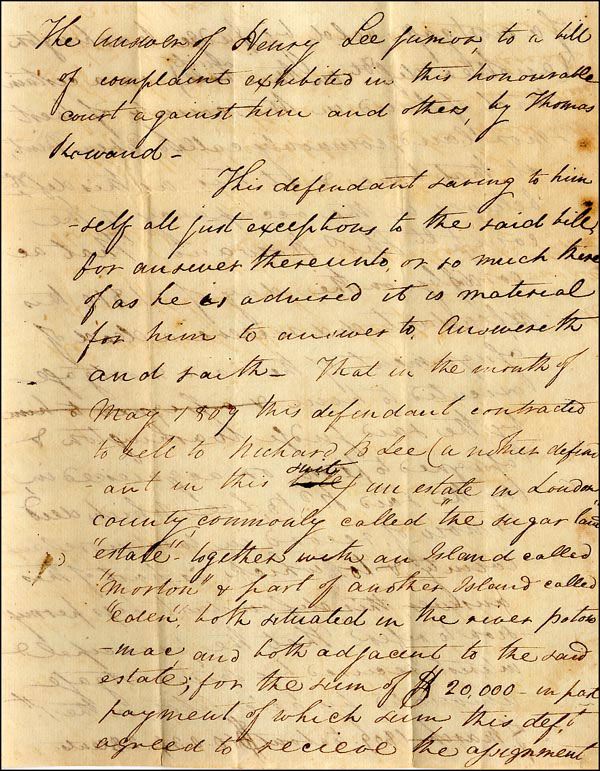 The Answer of Henry Lee junior, to a bill
of complaint exhibited in this honourable
court against him and others, by Thomas
Rowand -
This defendant saving to him
-self all just exceptions to the said bill,
for answer thereunto, or so much there
of as he is advised it is material
for him to answer to, Answereth
and saith - That in the month of
May 1809 this defendant contracted
to sell to Richard B Lee (another defend
-ant in this suit) an estate in Loudon
county, commonly called "the sugar land
"estate" - together with an Island called
"Morton" & part of another Island called
"Eden", both situated in the river poto
-mac and both adjacent to the said
estate; for the sum of $ 20,000 - in part
payment of which sum this deft
agreed to recieve the assignment